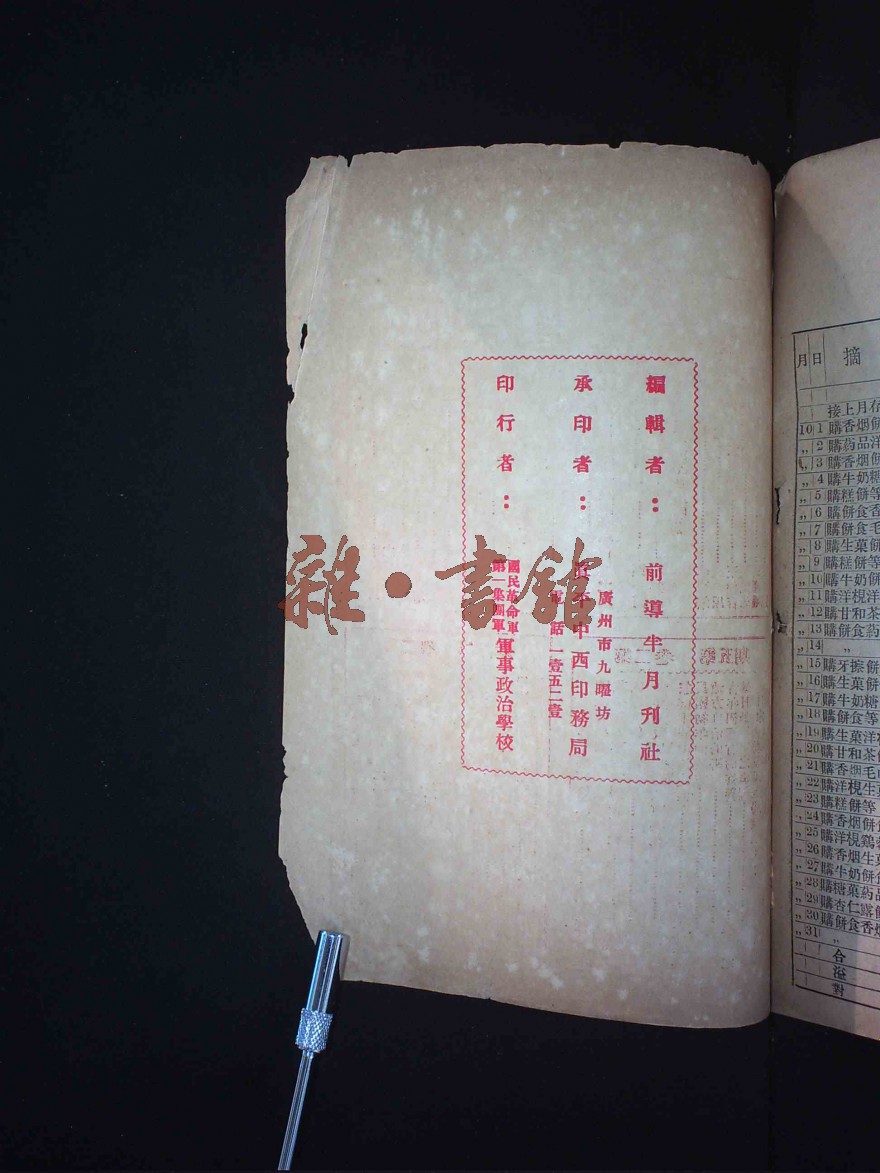 編輯者：前導半月刊社
廣州市九曜坊
承印者：中西印務局
話一壹五二壹
印行者：國民革命軍第一集團軍軍事政治學校
雜·書館
月 日 摘
接上月存
10 1 購香烟餅
〃 2 購葯品洋
〃 3 購香烟餅
〃 4 購牛奶糖
〃 5 購糕餅等
〃 6 購餅食香
〃 7 購餅食毛
〃 8 購生菓餅
〃 9 購糕餅等
〃 10 購牛奶餅
〃 11 購洋梘洋
〃 12 購甘和茶
〃 13 購餅食葯
〃 14 〃
〃 15 購牙擦餅
〃 16 購生菓餅
〃 17 購牛奶糖
〃 18 購餅食等
〃 19 購生菓洋
〃 20 購甘和茶
〃 21 購香烟毛
〃 22 購洋梘生
〃 23 購糕餅等
〃 24 購香烟餅
〃 25 購洋梘鷄
〃 26 購香烟生
〃 27 購牛奶餅
〃 28 購糖菓葯品
〃 29 購杏仁露
〃 30 購餅食香烟
〃 31 〃
合
溢
對